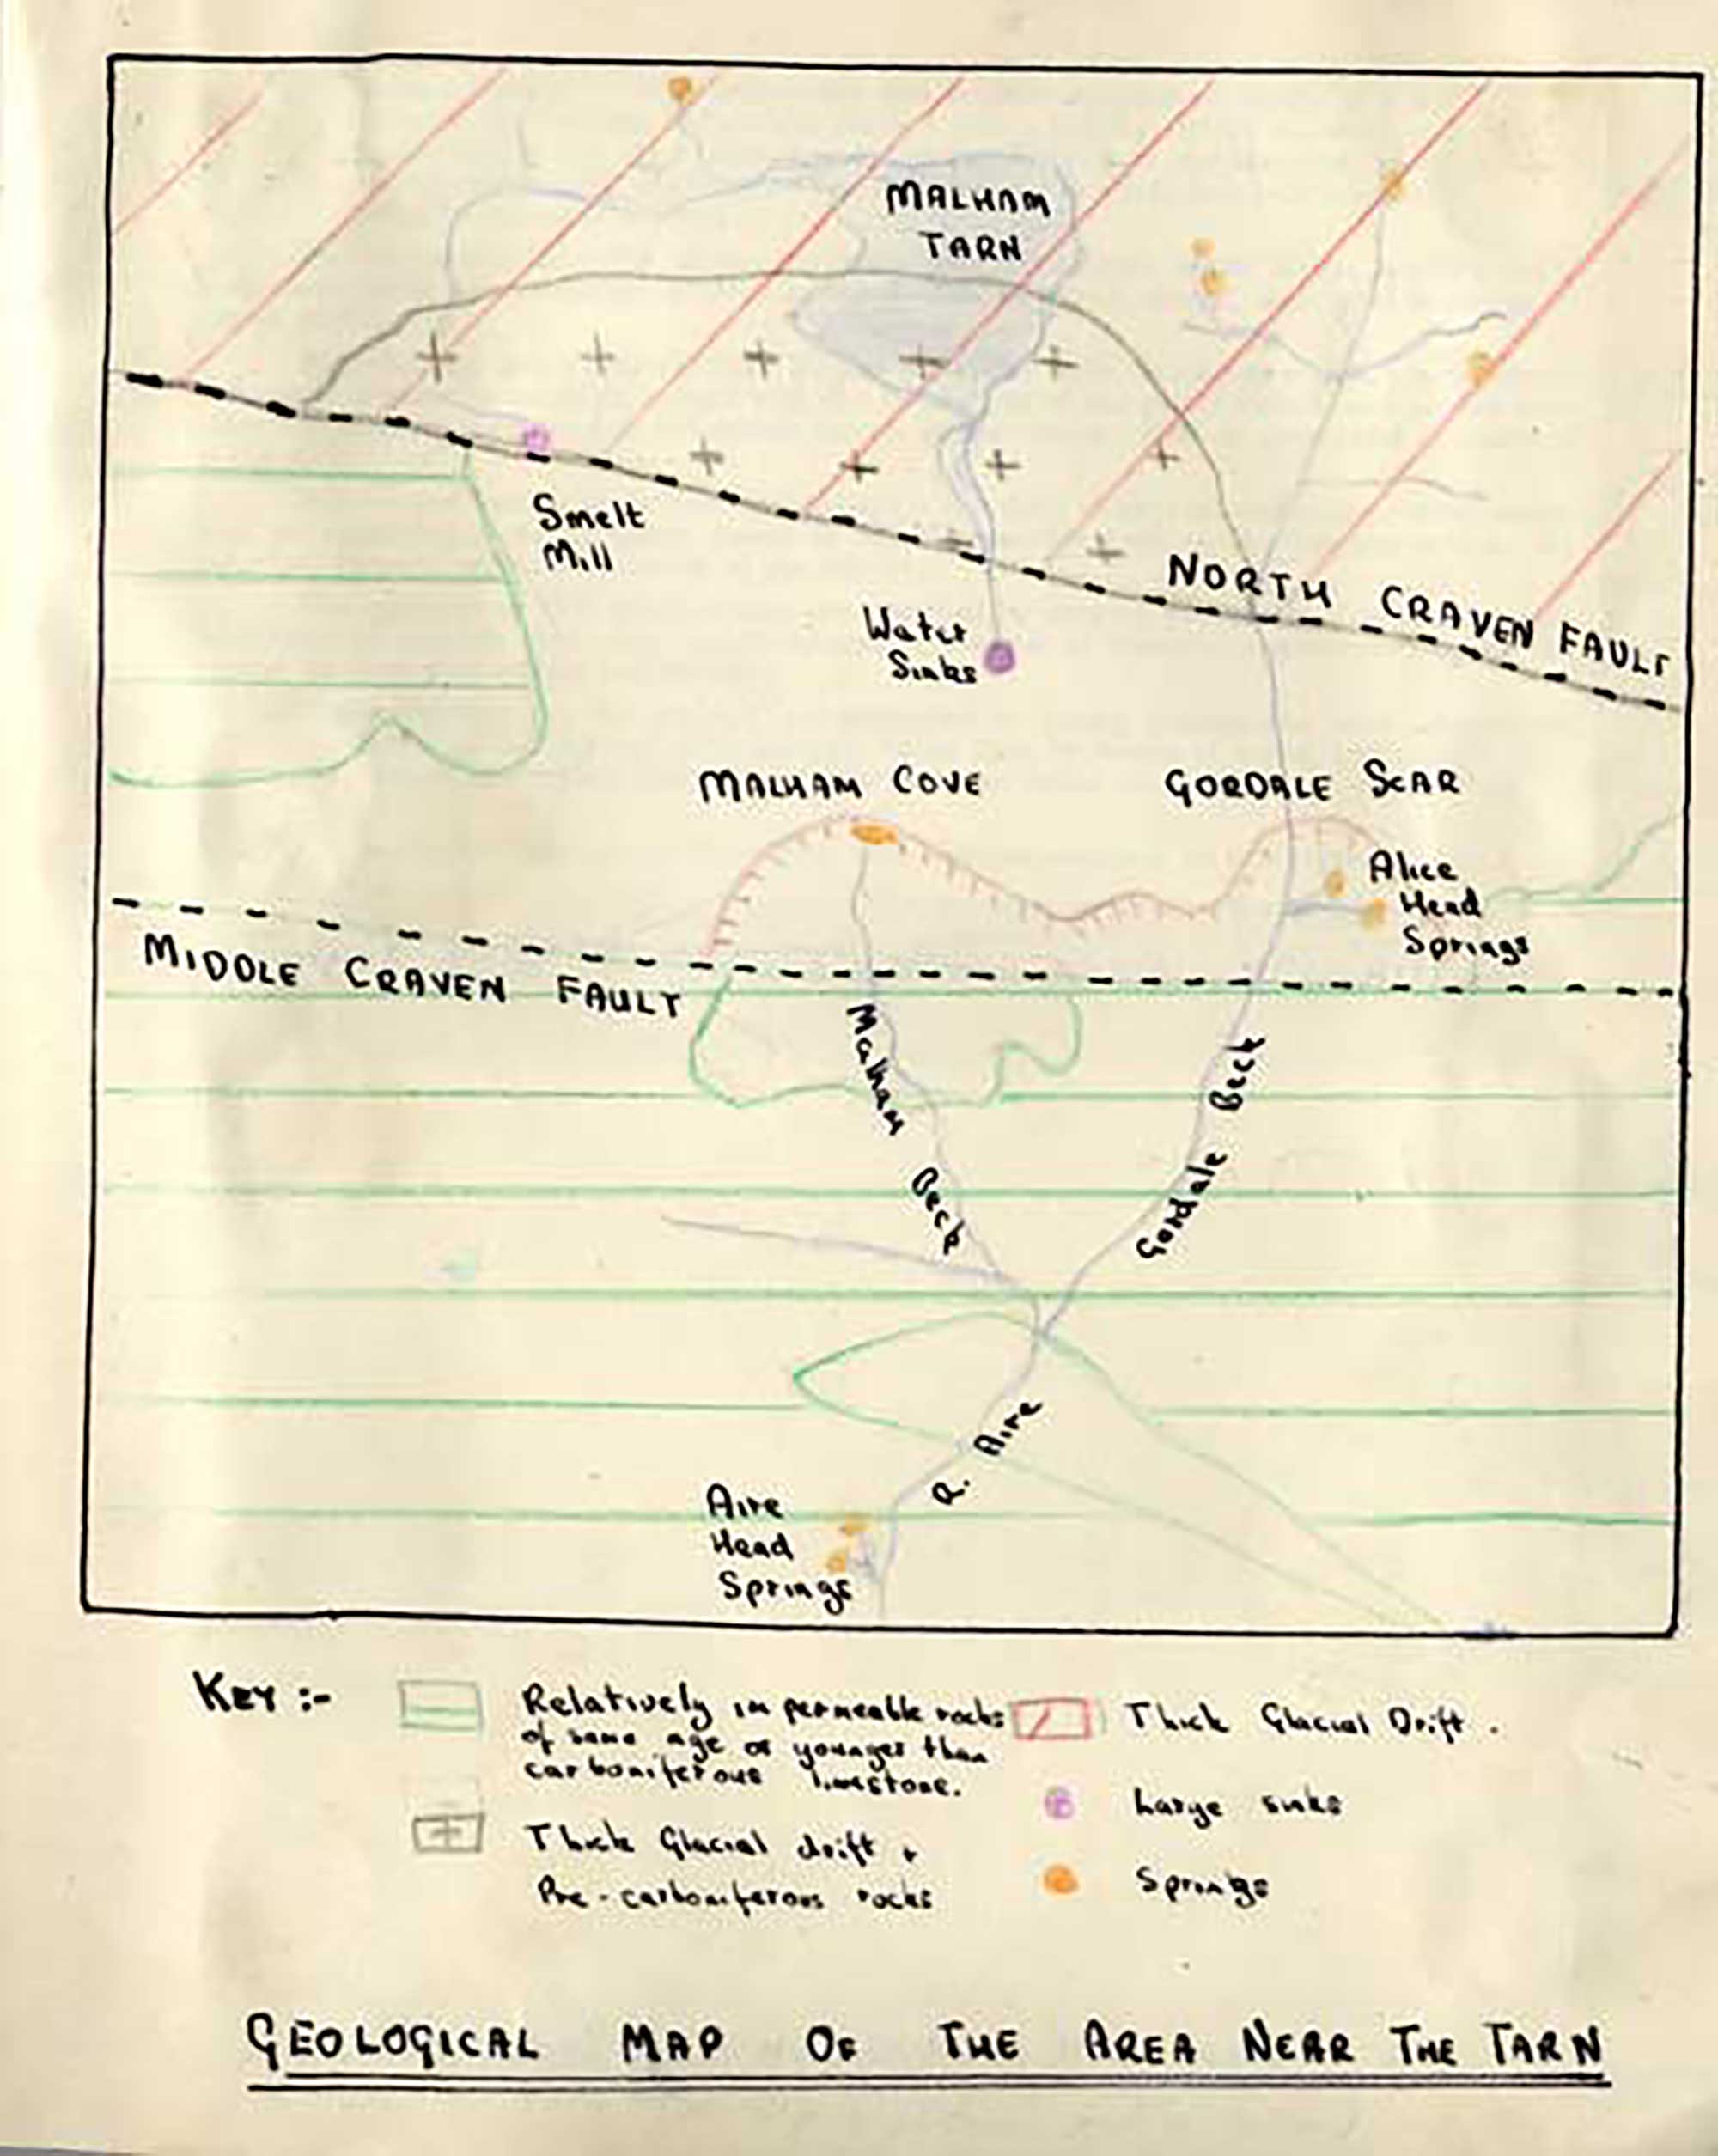 MALHAM
TARN
Smelt
Mill
NORTH CRAVEN FAULT
Water
Sinks
MALHAM COVE
GORDALE SCAR
Alice
Head
Springs
MIDDLE CRAVEN FAULT
Malham Beck
Gordale Beck
R. Aire
Aire
Head
Springs
KEY :-
Relatively impermeable rocks
of same age or younger than
carboniferous limestone.
Thick Glacial Drift.
Large sinks
Thick Glacial drift +
Pre-carboniferous rocks
Springs
GEOLOGICAL MAP OF THE AREA NEAR THE TARN